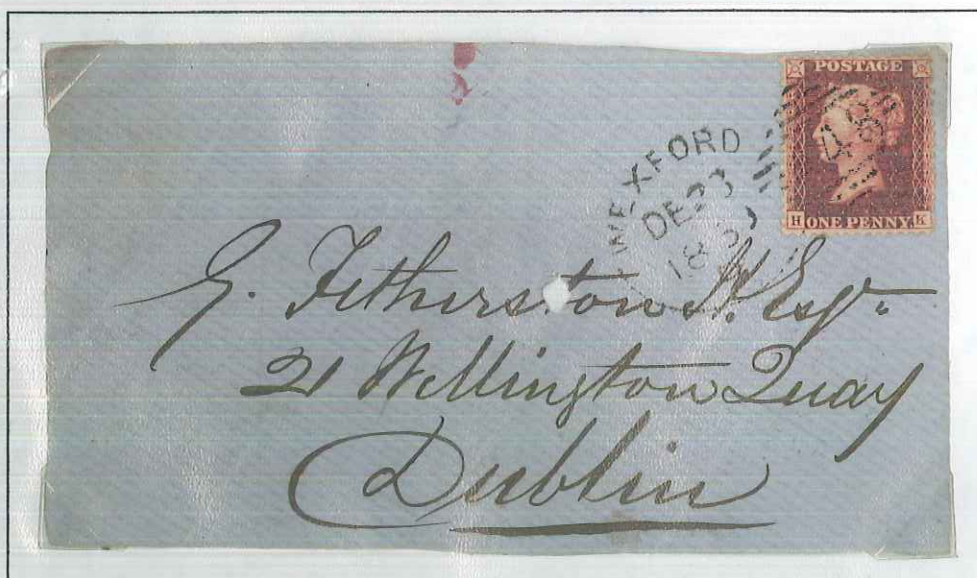 POSTAGE
H ONE PENNY. K
WEXFORD
DE 23
G. Fetherston H. Esqr.
21 Wellington Quay
Dublin